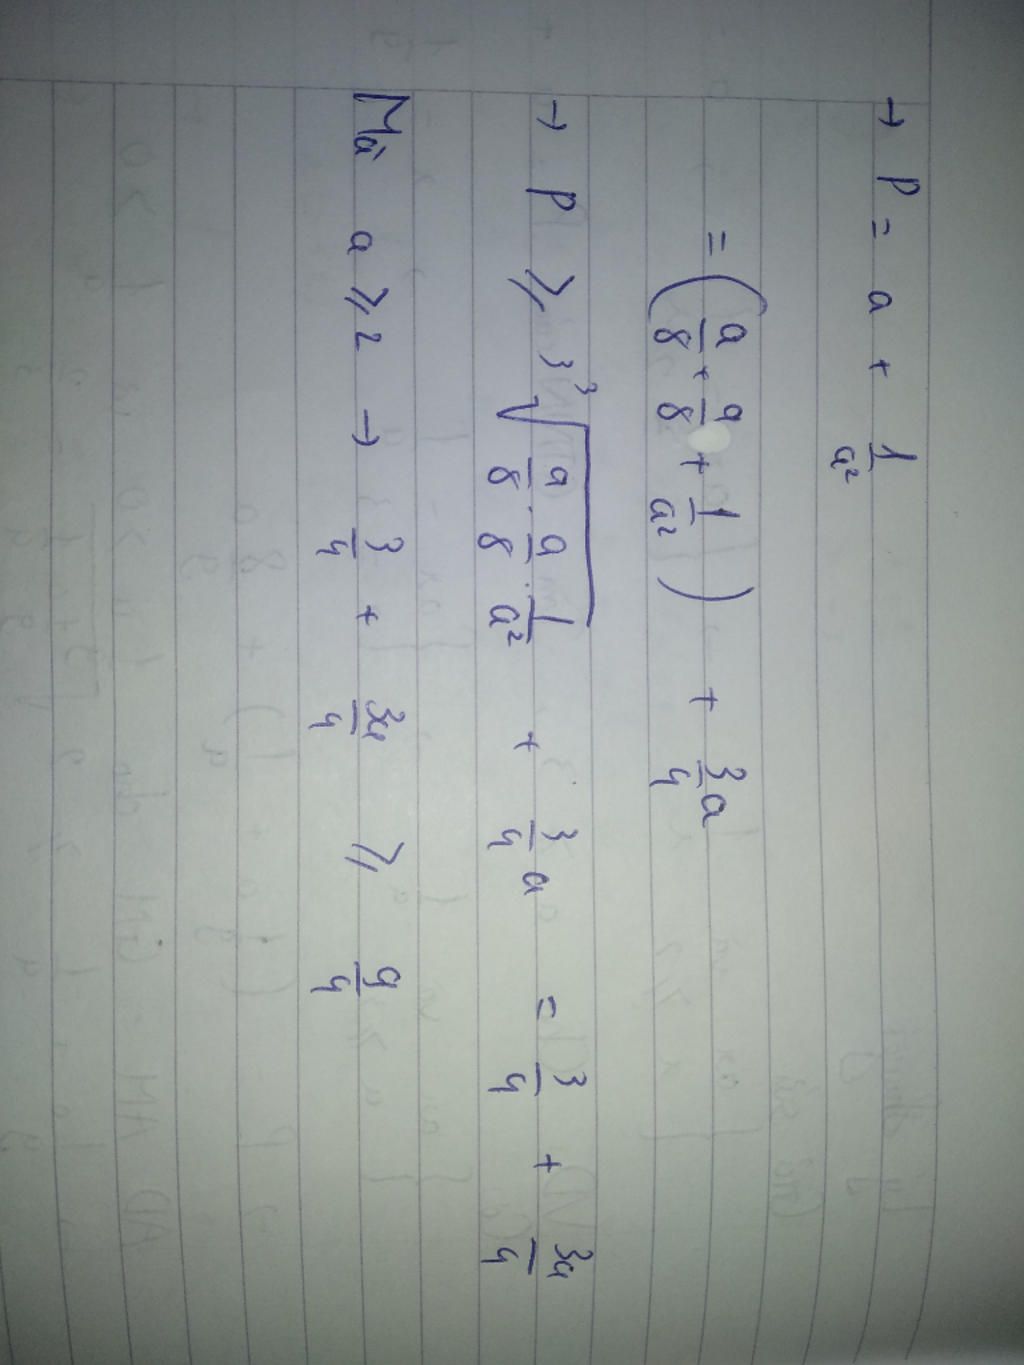 → P = a + 1/a²
= (a/8 + a/8 + 1/a²) + 3/4 a
→ P ≥ 3 ∛(a/8 . a/8 . 1/a²) + 3/4 a = 3/4 + 3a/4
Mà a ≥ 2 → 3/4 + 3a/4 ≥ 9/4